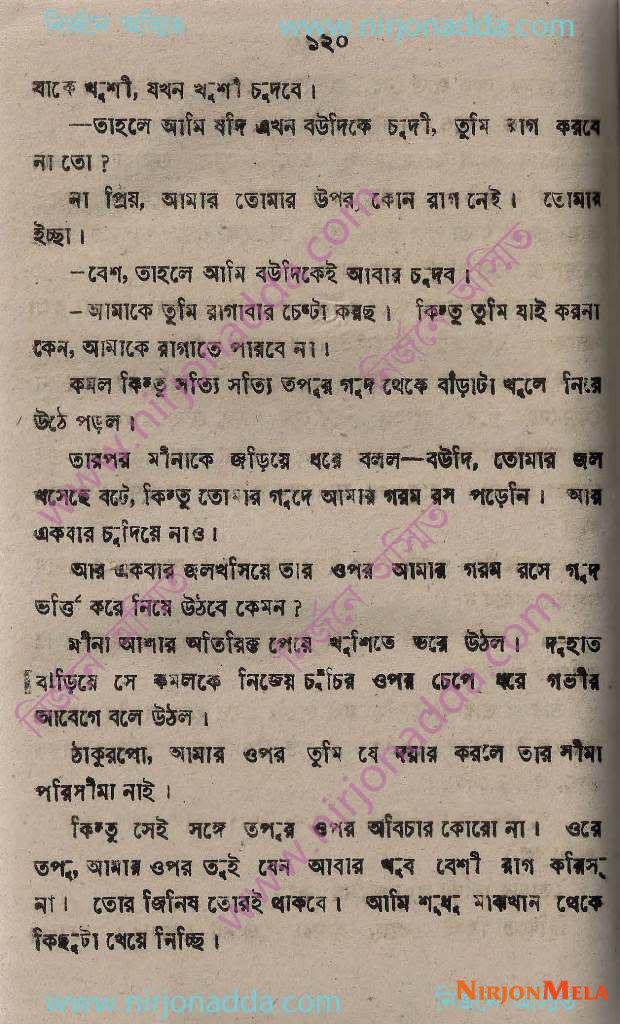 নির্জনে অস্মিত www.nirjonadda.com
১২০
যাকে খুশী, যখন খুশী চুদবে।
—তাহলে আমি যদি এখন বউদিকে চুদী, তুমি রাগ করবে
না তো ?
না প্রিয়, আমার তোমার উপর কোন রাগ নেই। তোমার
ইচ্ছা।
–বেশ, তাহলে আমি বউদিকেই আবার চুদব।
–আমাকে তুমি রাগাবার চেষ্টা করছ। কিন্তু তুমি যাই করনা
কেন, আমাকে রাগাতে পারবে না।
কমল কিন্তু সত্যি সত্যি তপুর গুদ থেকে বাঁড়াটা খুলে নিয়ে
উঠে পড়ল।
তারপর মীনাকে জড়িয়ে ধরে বলল—বউদি, তোমার জল
খসেছে বটে, কিন্তু তোমার গুদে আমার গরম রস পড়েনি। আর
একবার চুদিয়ে নাও।
আর একবার জলখসিয়ে তার ওপর আমার গরম রসে গুদ
ভর্ত্তি করে নিয়ে উঠবে কেমন ?
মীনা আশার অতিরিক্ত পেয়ে খুশিতে ভরে উঠল। দুহাত
বাড়িয়ে সে কমলকে নিজেয় চুঁচির ওপর চেপে ধরে গভীর
আবেগে বলে উঠল।
ঠাকুরপো, আমার ওপর তুমি যে দয়ার করলে তার সীমা
পরিসীমা নাই।
কিন্তু সেই সঙ্গে তপুর ওপর অবিচার কোরো না। ওরে
তপু, আমার ওপর তুই যেন আবার খুব বেশী রাগ করিস্
না। তোর জিনিষ তোরই থাকবে। আমি শুধু মাঝখান থেকে
কিছুটা খেয়ে নিচ্ছি।
www.nirjonadda.com
নির্জনে অস্মিত
www.nirjonadda.com
নির্জনে অস্মিত
নির্জনে অস্মিত
www.nirjonadda.com
NIRJONMELA
www.nirjonadda.com নির্জনে অস্মিত